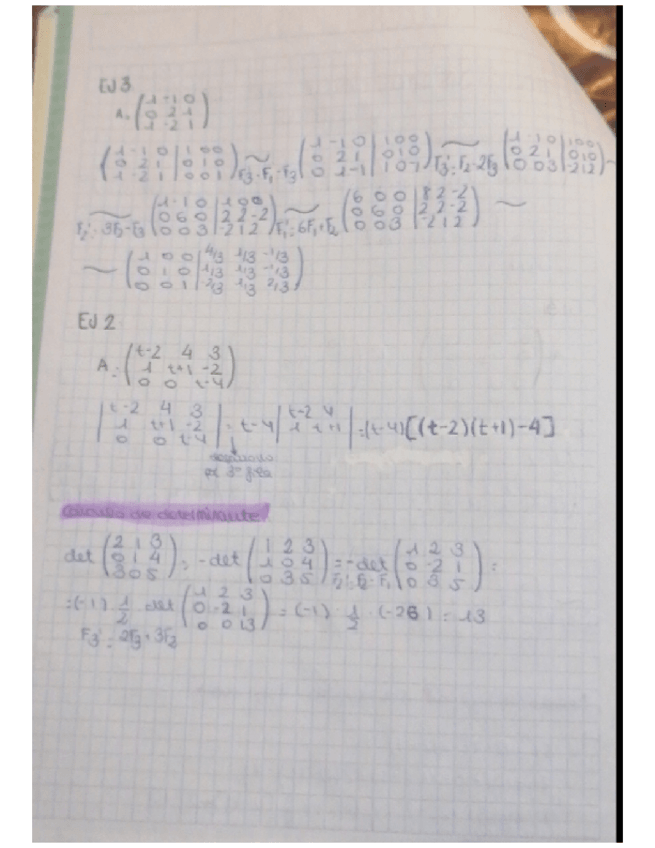 EJ 3
A = (1 -1 0
0 2 1
1 -2 1)
(1 -1 0 | 1 0 0
0 2 1 | 0 1 0
1 -2 1 | 0 0 1) ~ F3'=F1-F3 (1 -1 0 | 1 0 0
0 2 1 | 0 1 0
0 1 -1 | 1 0 -1) ~ F3'=F2-2F3 (1 -1 0 | 1 0 0
0 2 1 | 0 1 0
0 0 3 | -2 1 2) ~
~ F2'=3F2-F3 (1 -1 0 | 1 0 0
0 6 0 | 2 2 -2
0 0 3 | -2 1 2) ~ F1'=6F1+F2 (6 0 0 | 8 2 -2
0 6 0 | 2 2 -2
0 0 3 | -2 1 2) ~
~ (1 0 0 | 4/3 1/3 -1/3
0 1 0 | 1/3 1/3 -1/3
0 0 1 | -2/3 1/3 2/3)
EJ 2
A = (t-2 4 3
1 t+1 -2
0 0 t-4)
|t-2 4 3
1 t+1 -2
0 0 t-4| = t-4 |t-2 4
1 t+1| = (t-4)[(t-2)(t+1)-4]
3ª fila
Cálculo de determinante
det (2 1 3
0 1 4
3 0 5) = -det (1 2 3
1 0 4
0 3 5) = F2'=F2-F1 -det (1 2 3
0 -2 1
0 3 5) =
= (-1) 1/2 det (1 2 3
0 -2 1
0 0 13) = (-1) · 1/2 · (-26) = 13
F3' = 2F3+3F2